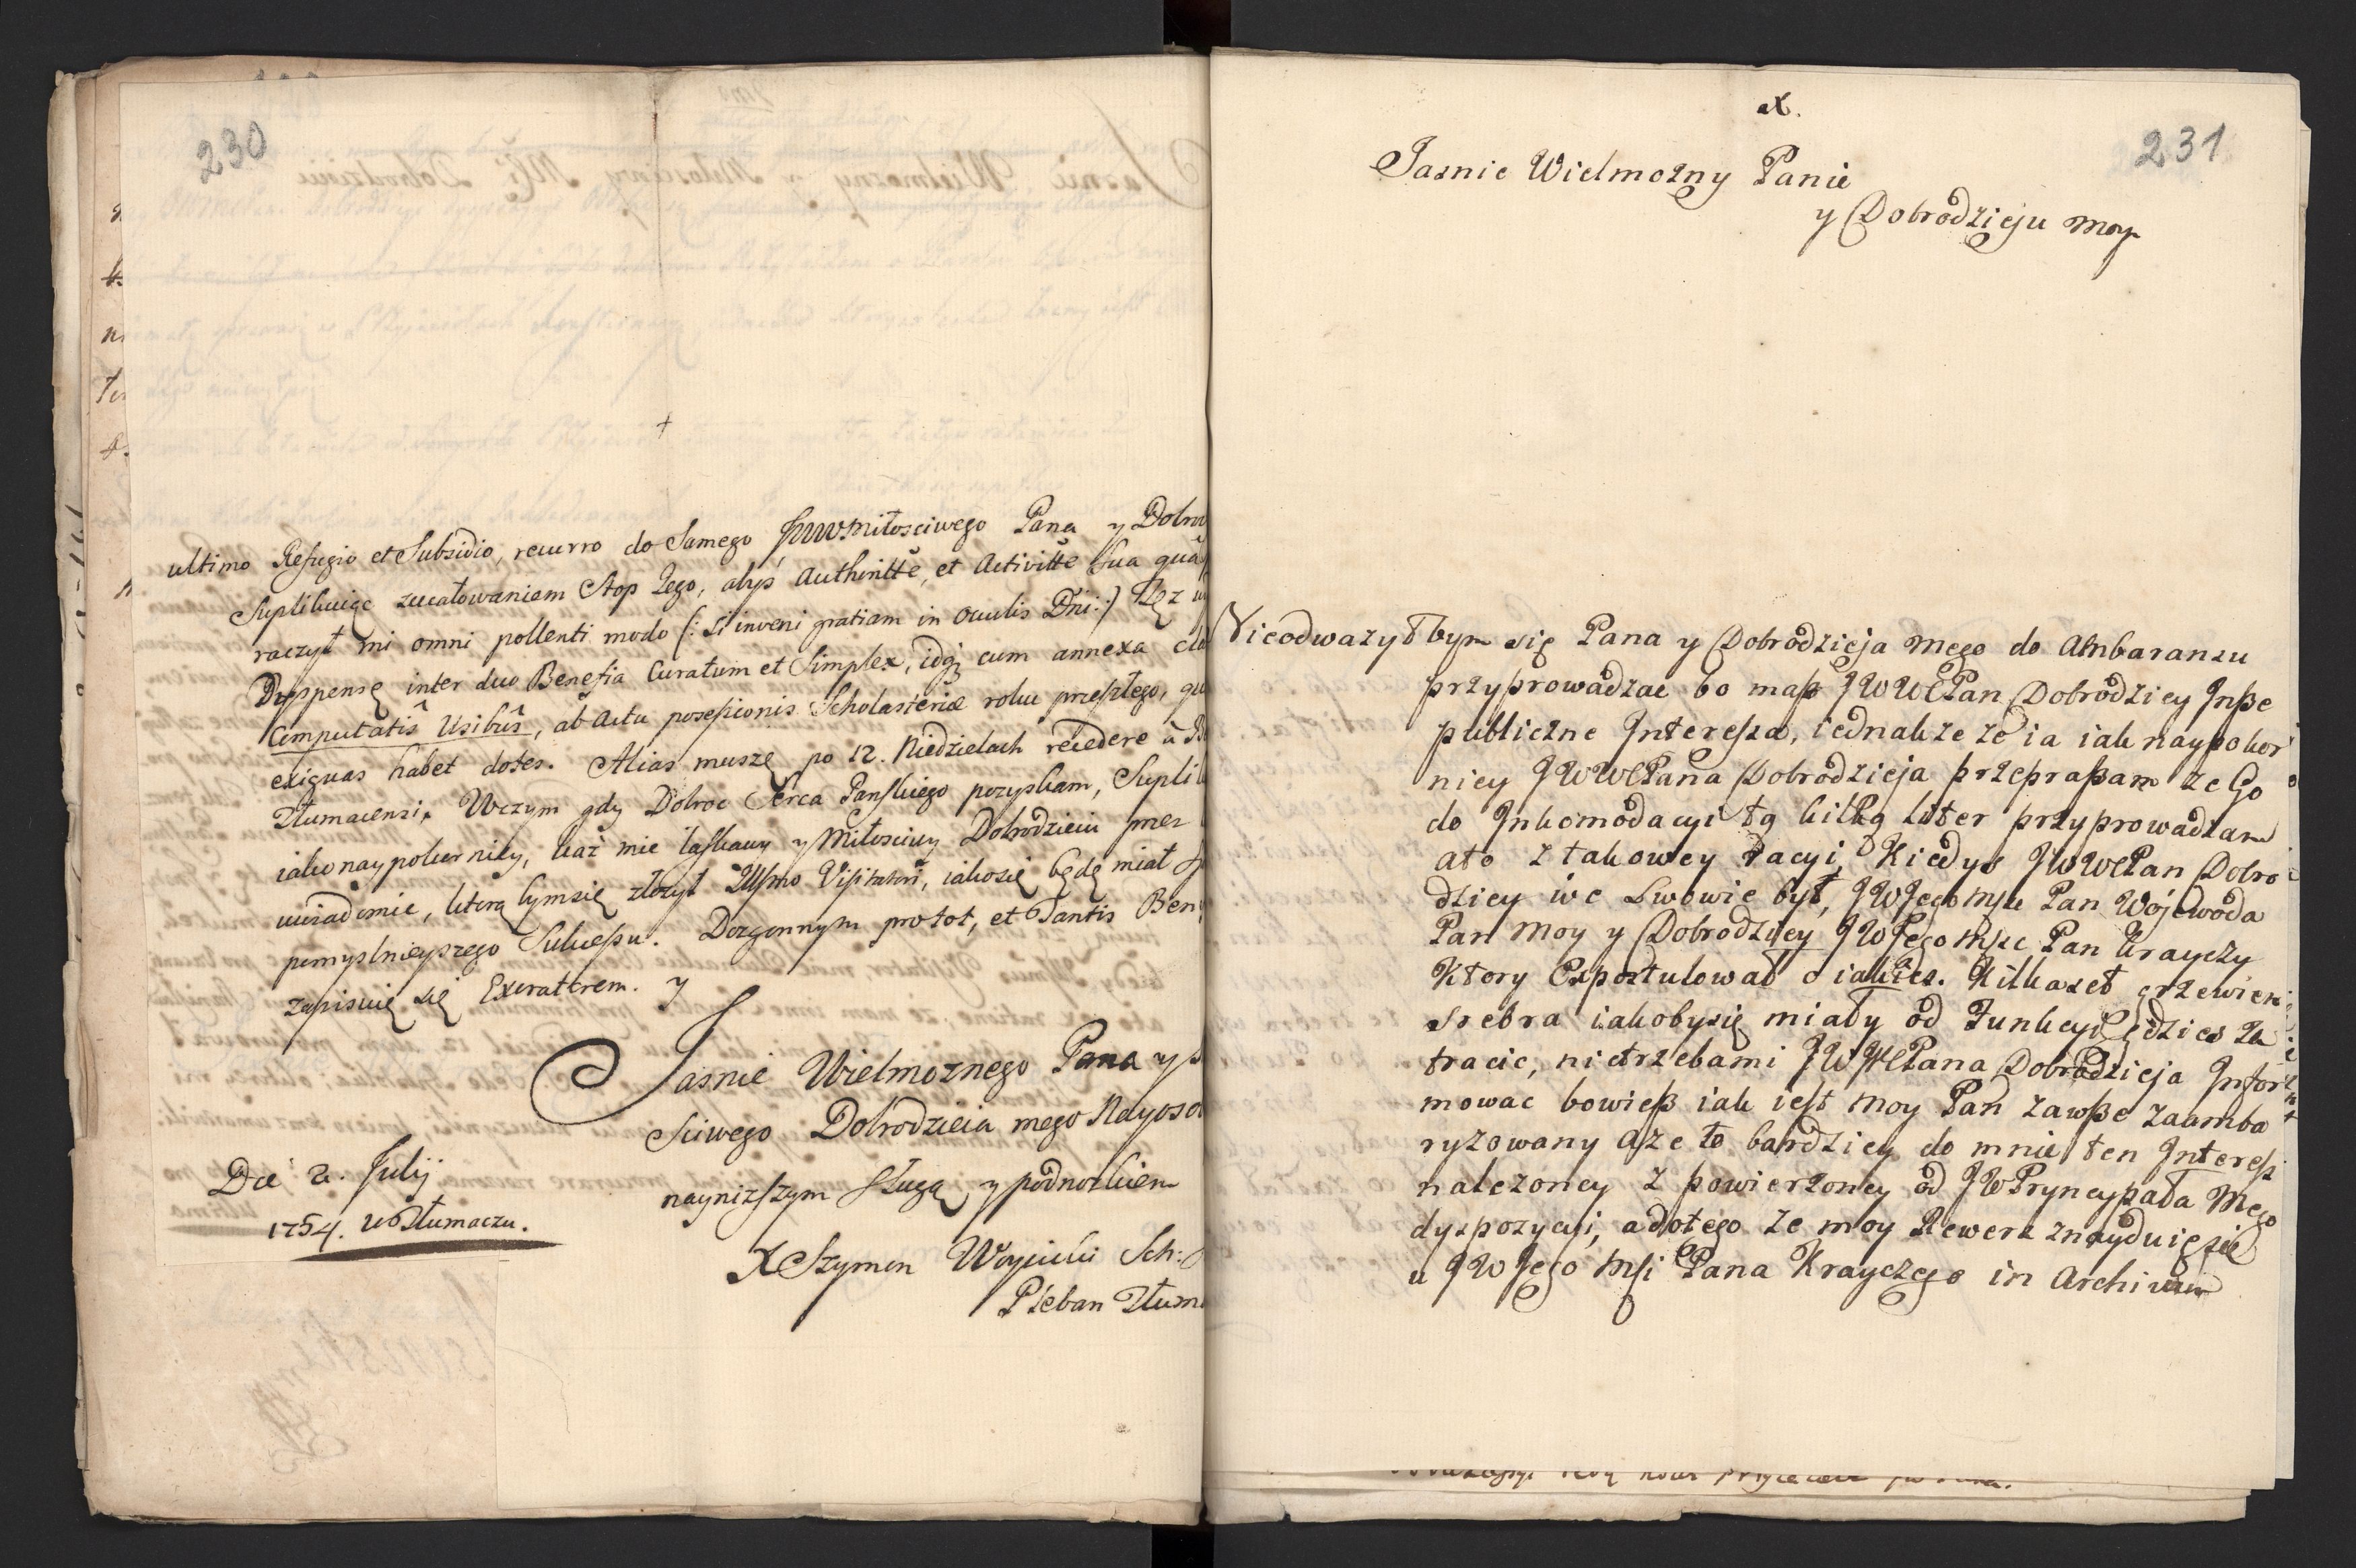 230
+
ultimo Refugio et Subsidio, recurro do Samego JWWMiłosciwego Pana y Dobro
Suplikuiąc zucałowaniem Stop Jego, abyś Authoritte, et Activitte Sua quâ
raczył mi omni pollenti modo (: si inveni gratiam in oculis Dni :)
Dyspensę inter duo Benefia Curatum et Simplex, idq cum annexa
Computatis Usibus, ab actu possessionis Scholasteriæ roku przeszłego,
exiguas habet dotes. Alias muszę po 12. Niedzielach recedere a
Tłumacensi. Wczym gdy Dobroc Serca Panskiego pozyskam, Supli
iako naypokorniey, każ mie łaskawy y Miłosciwy Dobrodzieiu
uwiadomic, którą bymsię złozył Illsmo Visitatori, iakosię będę miał
pomyslnieyszego Sukcessu. Dozgonnym pro tot, et Tantis
zapisuię się Exorattrem. y
Jasnie Wielmoznego Pana y
sciwego Dobrodzieia mego Nayoso
nayniższym sługą y podnozkiem
X Szymon Woyicki Sch:
Pleban Tłum
Die 2. Julij
1754. w Tłumaczu.
231
Jasnie Wielmozny Panie
y Dobrodzieju moy
Nieodwazył bym się Pana y Dobrodzieja mego do Ambaranzu
przyprowadzac bo masz JWWMPan Dobrodziey Insze
publiczne Interessa, iednakze ze ia iak naypokor
niey JWWMPana Dobrodzieja przepraszam ze Go
do Inkomodacyi tą kilką liter przyprowadzam
ato z takowey racyi, Kiedys JWWMPan Dobro
dziey we Lwowie był, JWJegomsc Pan Wojewoda
Pan moy y Dobrodziey JWJegomsc Pan Krayczy
Ktory Expostulował o iakies. Kilkaset grzewien
srebra iakobysię miały od Funkcyi gdzies za
tracic, nietrzebami JWWMPana Dobrodzieja Infor
mowac bowiesz iak iest moy Pan zawsze zaamba
ryzowany aze to bardziey do mnie ten Interess
nalezoney z powierzoney od JWPryncypała Mego
dyspozycyi, adotego ze moy Rewers znayduięsię
u JWJego Msi Pana Krayczego in Archivum